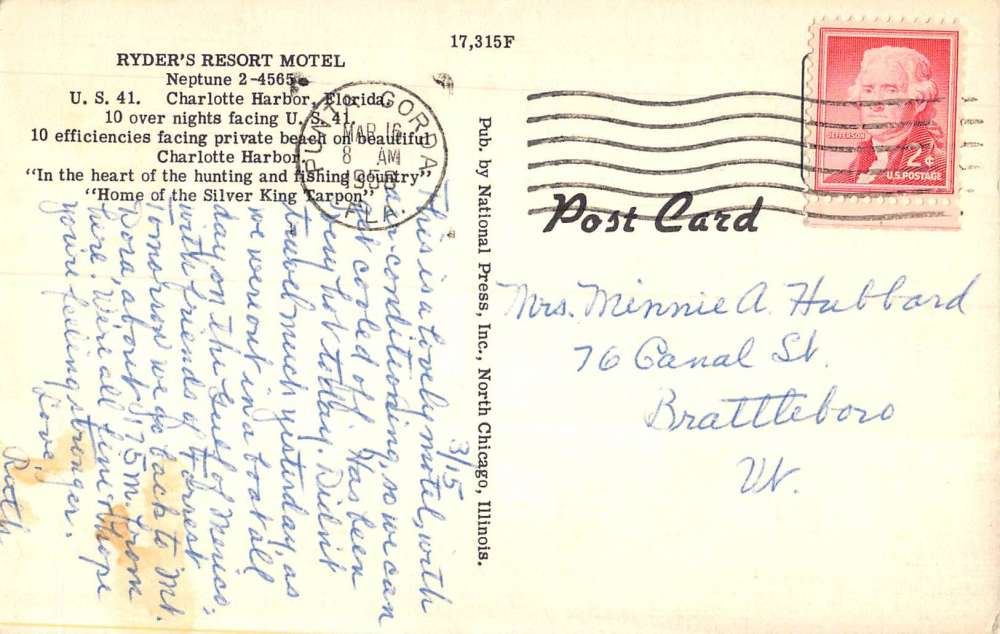 17,315F
RYDER'S RESORT MOTEL
Neptune 2-4565
U. S. 41. Charlotte Harbor, Florida,
10 over nights facing U. S. 41.
10 efficiencies facing private beach on beautiful
Charlotte Harbor.
"In the heart of the hunting and fishing country"
"Home of the Silver King Tarpon"
PUNTA GORDA
MAR 16
8 AM
FLA.
3/15
This is a lovely motel, with
air-conditioning, so we can
get cooled off. Has been
very hot today. Didn't
travel much yesterday, as
we were out in a boat all
day on the Gulf of Mexico,
with friends of Forrest
Tomorrow we go back to Mt.
Dora, about 175 m. from
here. We're all fine & hope
you're feeling stronger.
Love,
Ruth
Pub. by National Press, Inc., North Chicago, Illinois.
JEFFERSON
2¢
U.S. POSTAGE
Post Card
Mrs. Minnie A. Hubbard
76 Canal St.
Brattleboro
Vt.